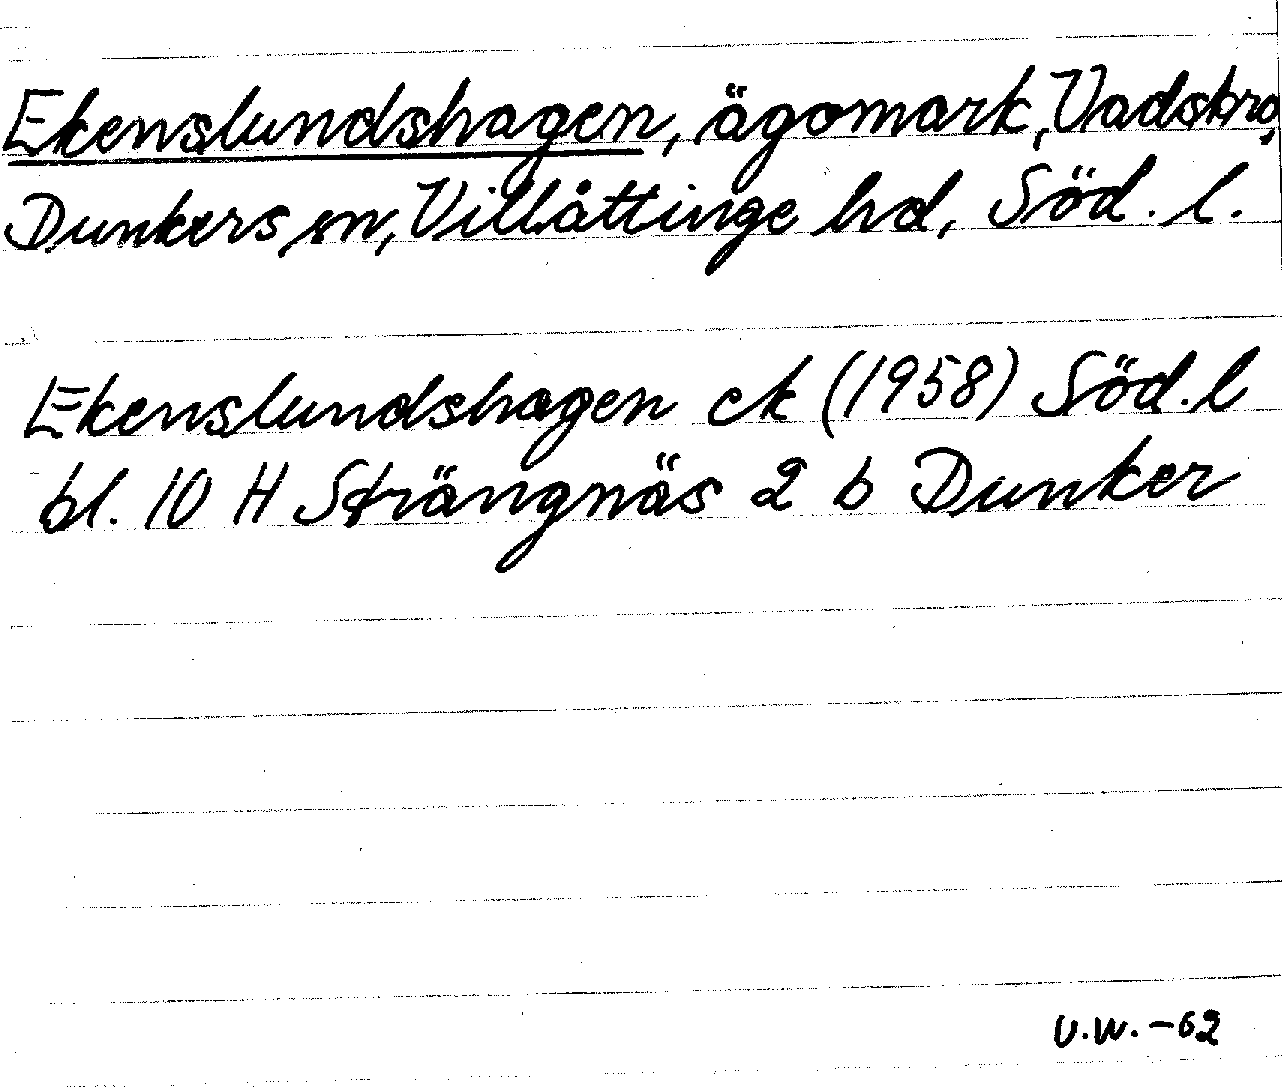 Ekenslundshagen, ägomark, Vadsbro,
Dunkers sn, Villåttinge hd, Söd. l.
Ekenslundshagen ek (1958) Söd. l
bl. 10 H Strängnäs 2 b Dunker
U.W. -62